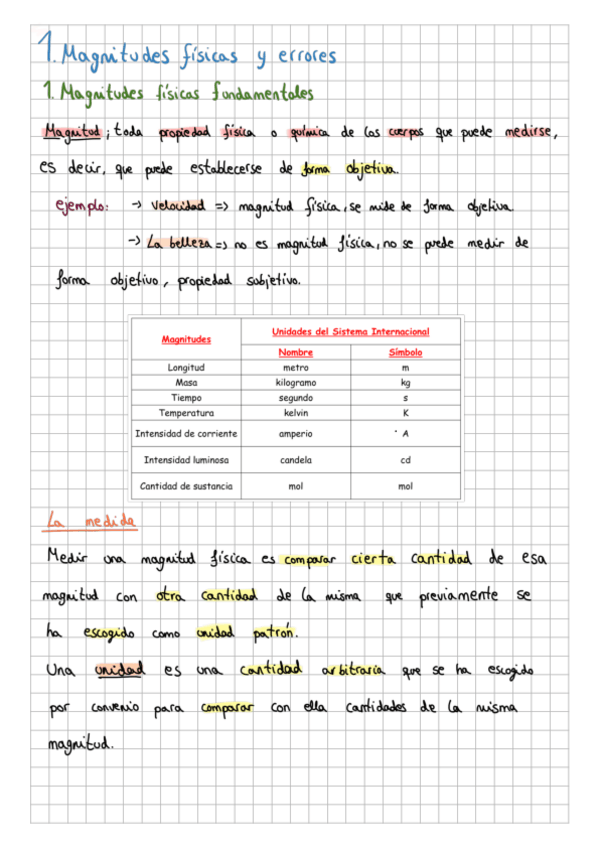 1. Magnitudes físicas y errores
1. Magnitudes físicas fundamentales
Magnitud; toda propiedad física o química de los cuerpos que puede medirse,
es decir, que puede establecerse de forma objetiva.
ejemplo: -> Velocidad => magnitud física, se mide de forma objetiva
-> La belleza => no es magnitud física, no se puede medir de
forma objetivo, propiedad subjetivo.
Magnitudes Unidades del Sistema Internacional
Nombre Símbolo
Longitud metro m
Masa kilogramo kg
Tiempo segundo s
Temperatura kelvin K
Intensidad de corriente amperio A
Intensidad luminosa candela cd
Cantidad de sustancia mol mol
La medida
Medir una magnitud física es comparar cierta cantidad de esa
magnitud con otra cantidad de la misma que previamente se
ha escogido como unidad patrón.
Una unidad es una cantidad arbitraria que se ha escogido
por convenio para comparar con ella cantidades de la misma
magnitud.